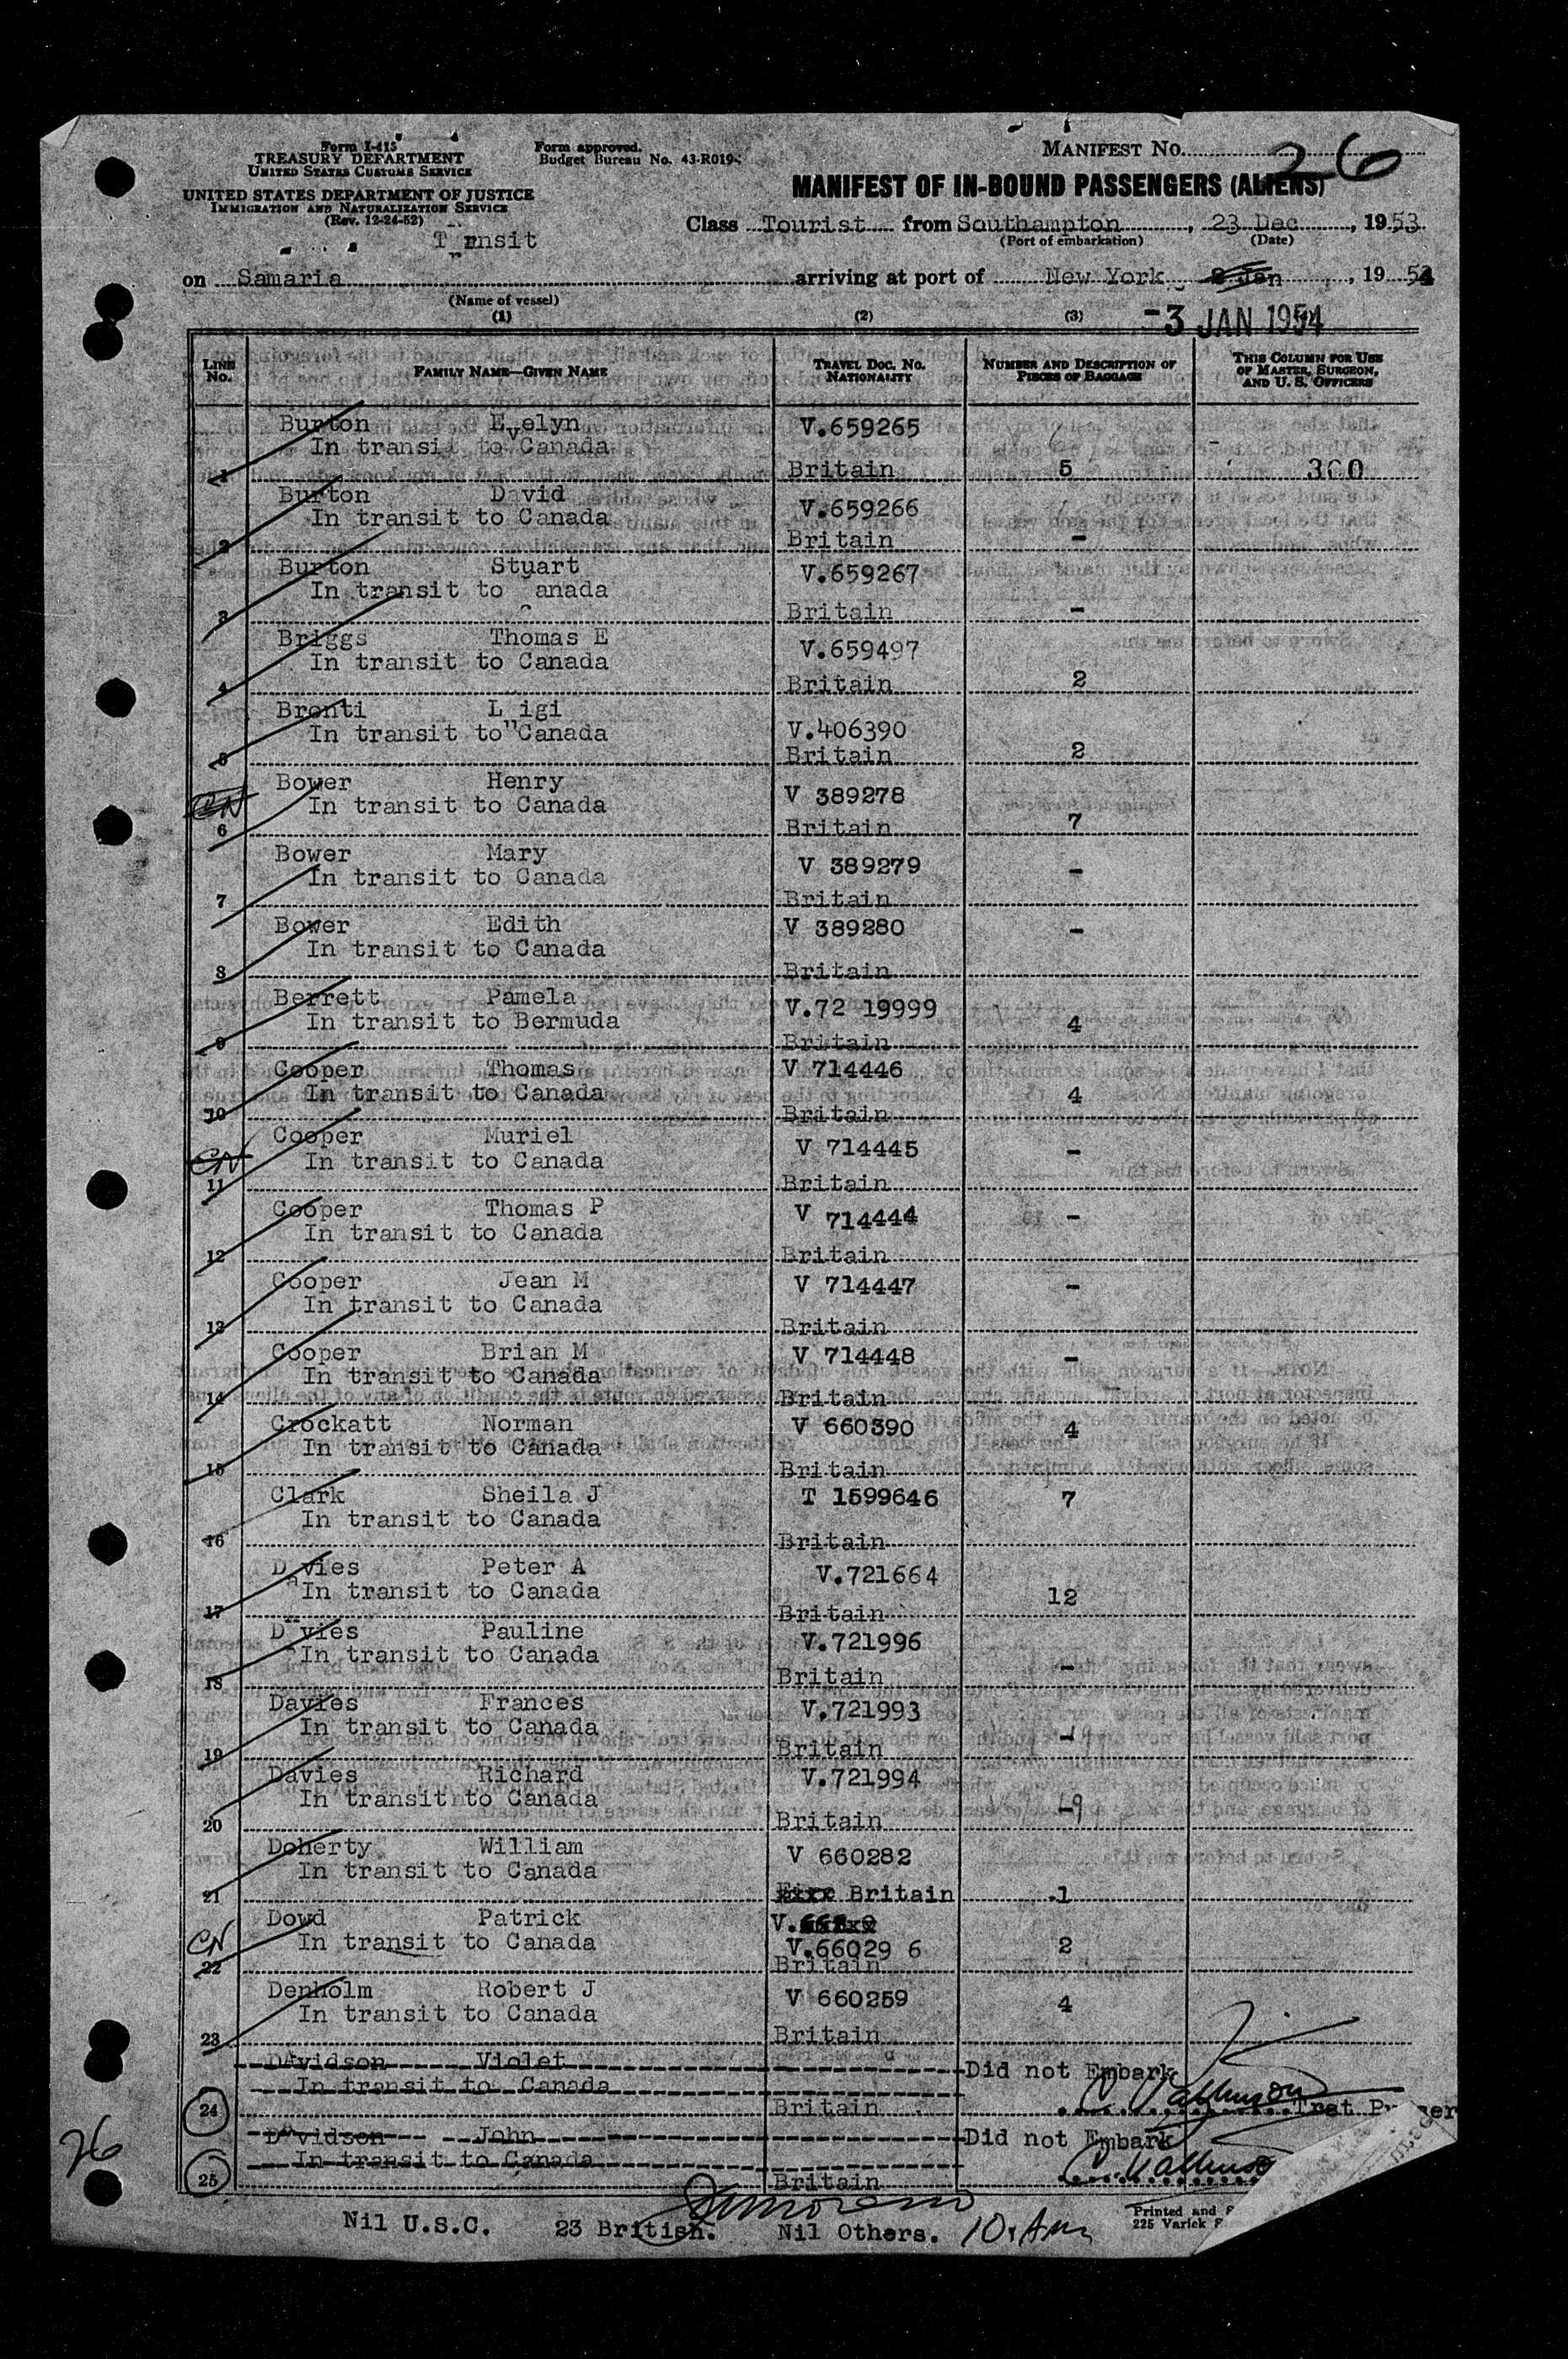 Form I-415
TREASURY DEPARTMENT
UNITED STATES CUSTOMS SERVICE
UNITED STATES DEPARTMENT OF JUSTICE
IMMIGRATION AND NATURALIZATION SERVICE
(Rev. 12-24-52)
Form approved.
Budget Bureau No. 43-R019
MANIFEST No. 26
MANIFEST OF IN-BOUND PASSENGERS (ALIENS)
Class Tourist from Southampton, 23 Dec, 1953
(Port of embarkation) (Date)
T ansit
on Samaria arriving at port of New York 2 Jan, 1954
(Name of vessel)
-3 JAN 1954
(1) (2) (3)
LINE No. FAMILY NAME—GIVEN NAME TRAVEL DOC. NO. NATIONALITY NUMBER AND DESCRIPTION OF PIECES OF BAGGAGE THIS COLUMN FOR USE OF MASTER, SURGEON, AND U. S. OFFICERS
Burton Evelyn V.659265
In transit to Canada
1 Britain 5 300
Burton David V.659266
In transit to Canada
2 Britain -
Burton Stuart V.659267
In transit to anada
3 Britain -
Briggs Thomas E V.659497
In transit to Canada
4 Britain 2
Bronti L igi V.406390
In transit to Canada
5 Britain 2
Bower Henry V 389278
CN In transit to Canada
6 Britain 7
Bower Mary V 389279
In transit to Canada -
7 Britain
Bower Edith V 389280
In transit to Canada -
8 Britain
Berrett Pamela V.72 19999
In transit to Bermuda 4
9 Britain
Cooper Thomas V 714446
In transit to Canada 4
10 Britain
Cooper Muriel V 714445
CN In transit to Canada -
11 Britain
Cooper Thomas P V 714444
In transit to Canada -
12 Britain
Cooper Jean M V 714447
In transit to Canada -
13 Britain
Cooper Brian M V 714448
In transit to Canada -
14 Britain
Crockatt Norman V 660390 4
In transit to Canada
15 Britain
Clark Sheila J T 1599646 7
In transit to Canada
16 Britain
Davies Peter A V.721664
In transit to Canada 12
17 Britain
Davies Pauline V.721996
In transit to Canada
18 Britain -
Davies Frances V.721993
In transit to Canada
19 Britain -
Davies Richard V.721994
In transit to Canada
20 Britain -
Doherty William V 660282
In transit to Canada
21 Britain 1
Dowd Patrick
CN In transit to Canada V.66029 6 2
22 Britain
Denholm Robert J V 660259
In transit to Canada 4
23 Britain
Davidson Violet Did not Embark
In transit to Canada
24 Britain
Davidson John Did not Embark
In transit to Canada
25 Britain
26
Nil U.S.C. 23 British. Nil Others. 10 Am
Printed and
225 Varick